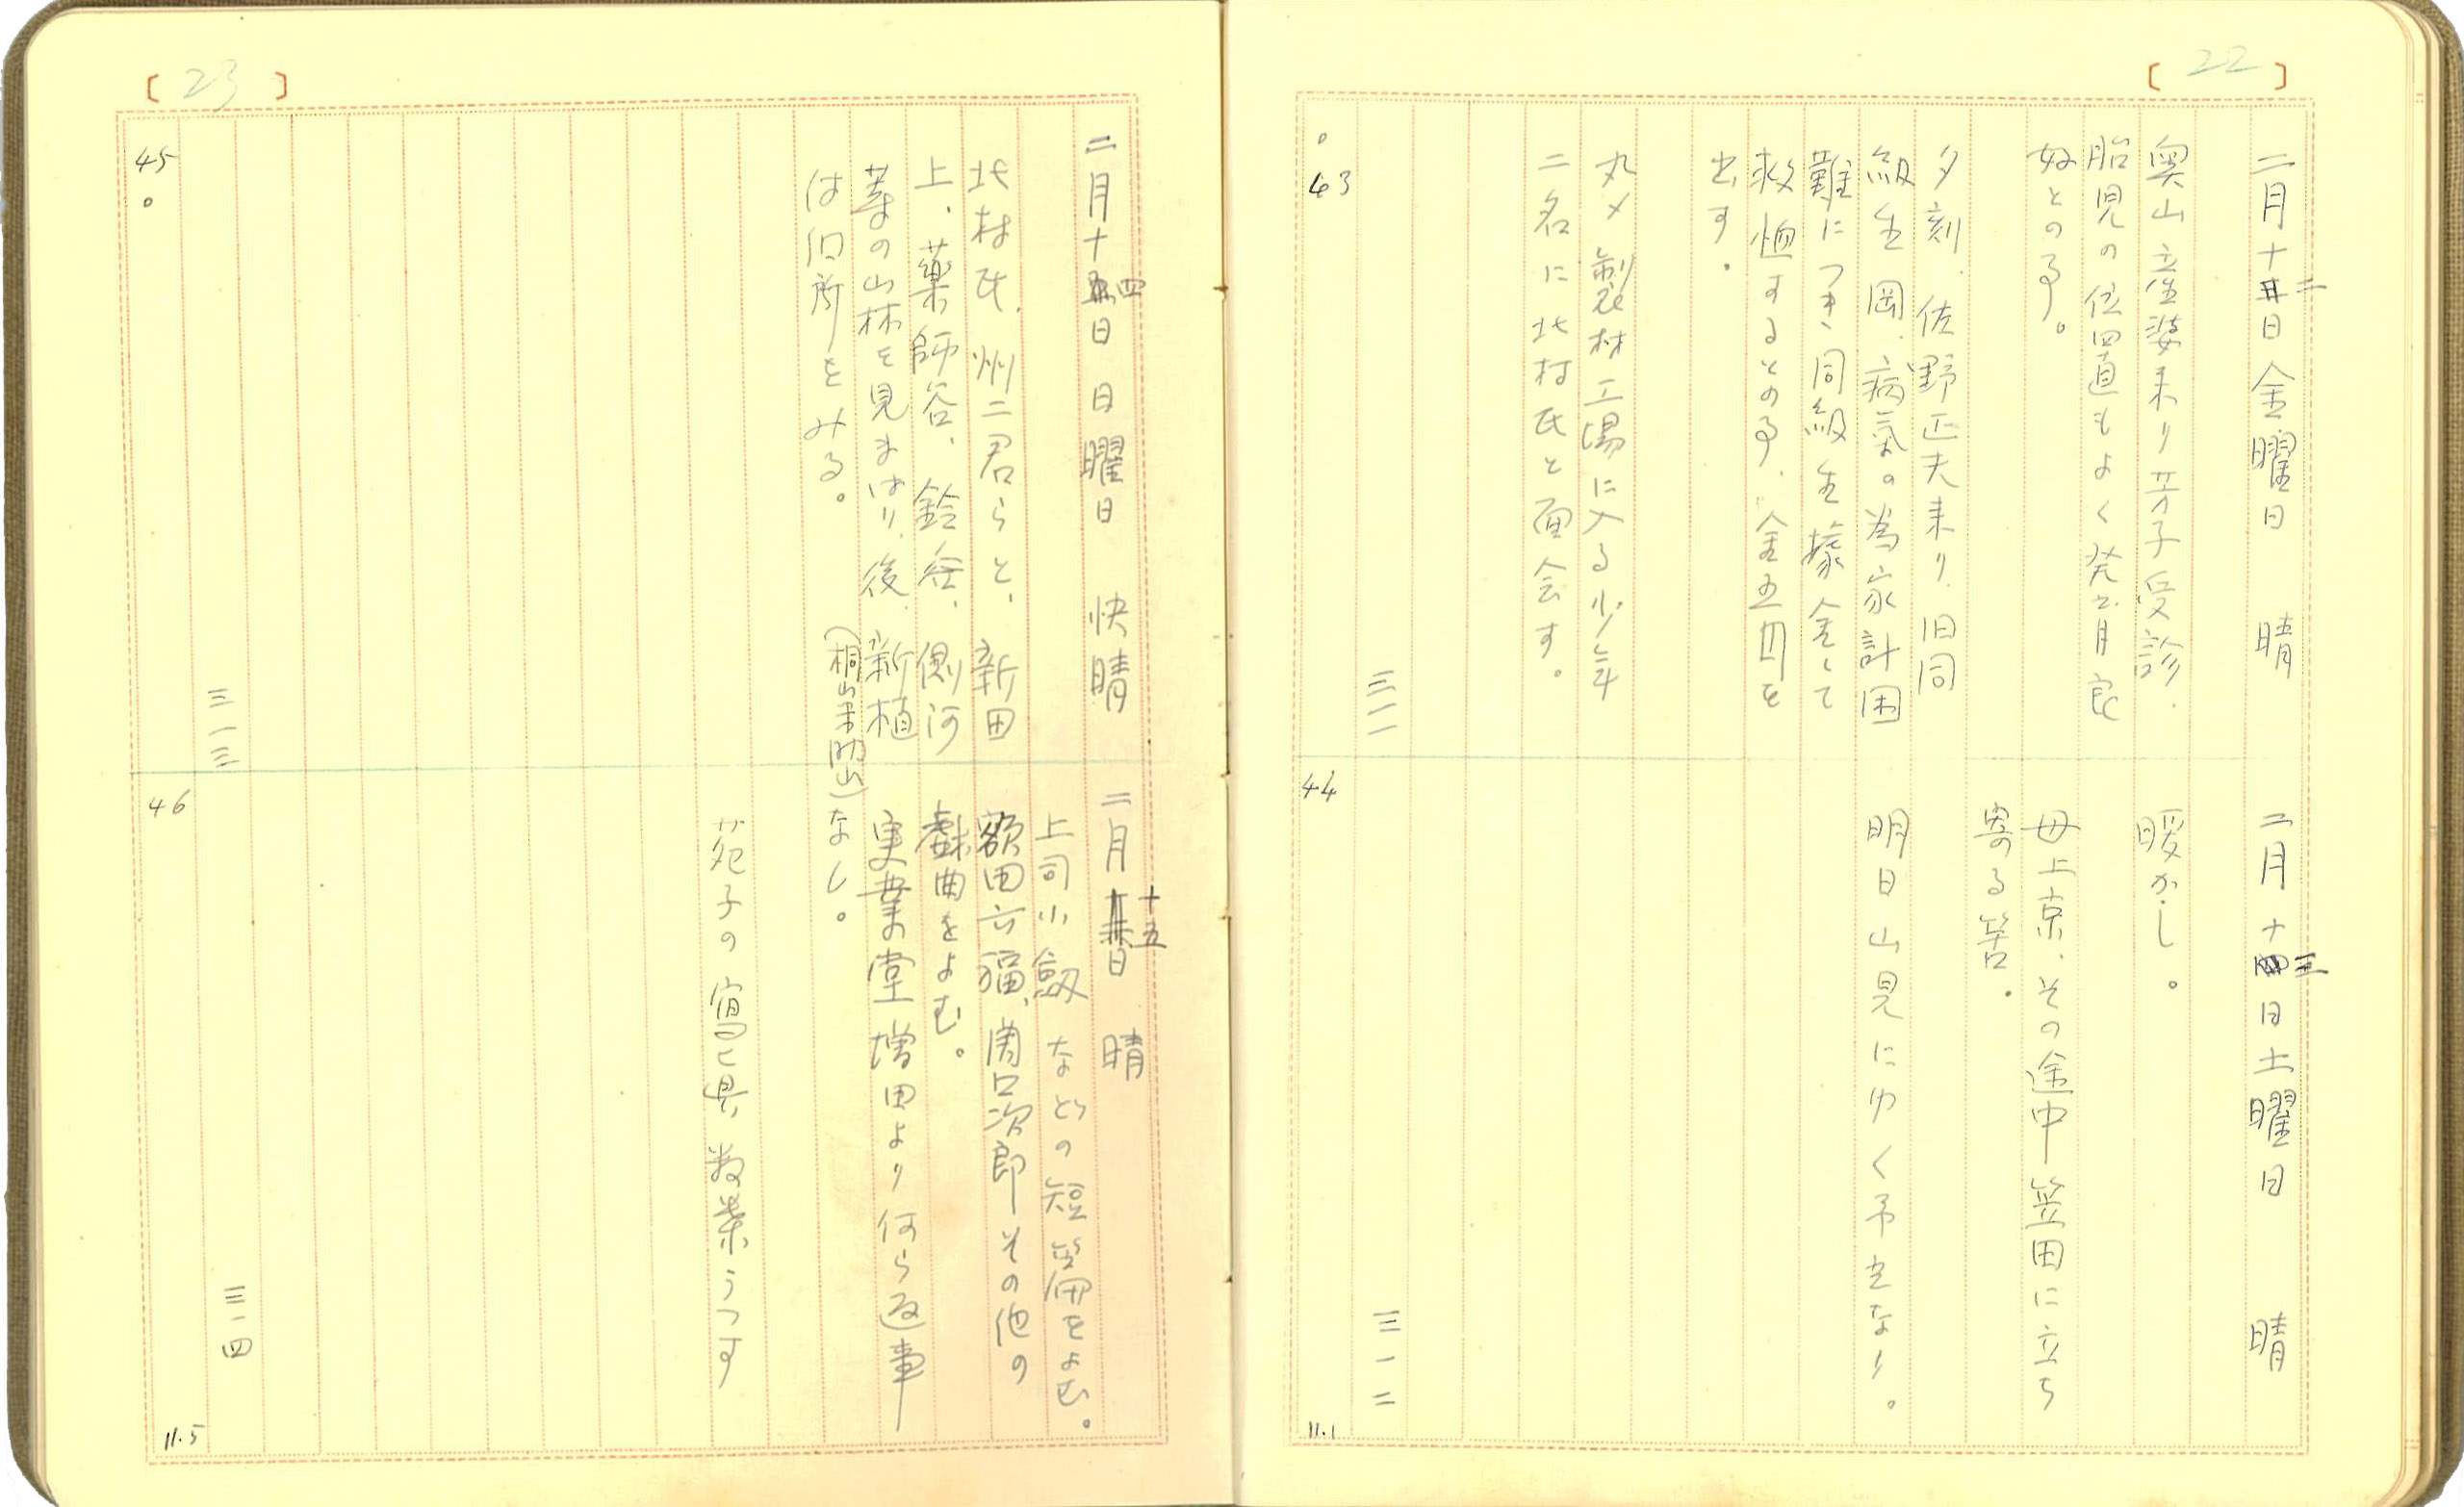 [22]
二月十二日 金曜日 晴
奥山産婆来り芳子受診.
胎児の位置もよく発育良
好との事。
夕刻、佐野正夫来り、旧同
級生岡、病氣の為家計困
難につき、同級生據金して
救恤するとの事、金五円を
出す.
丸〆製材工場に入る少年
二名に北村氏と面会す。
三一一
43
二月十三日土曜日 晴
暖かし。
母上京、その途中笠田に立ち
寄る筈.
明日山見にゆく予定なり。
三一二
44
11.1
[23]
二月十四日 日曜日 快晴
北村氏、州二君らと、新田
上、藥師谷、鈴谷、側河
等の山林を見まはり、後、新植
(桐山米助山)
は旧所をみる。
三一三
45
二月十五日 晴
上司小劔などの短篇をよむ。
額田六福、関口次郎その他の
戯曲をよむ。
実業堂増田より何ら返事
なし。
苑子の寫真数葉うつす
三一四
46
11.5